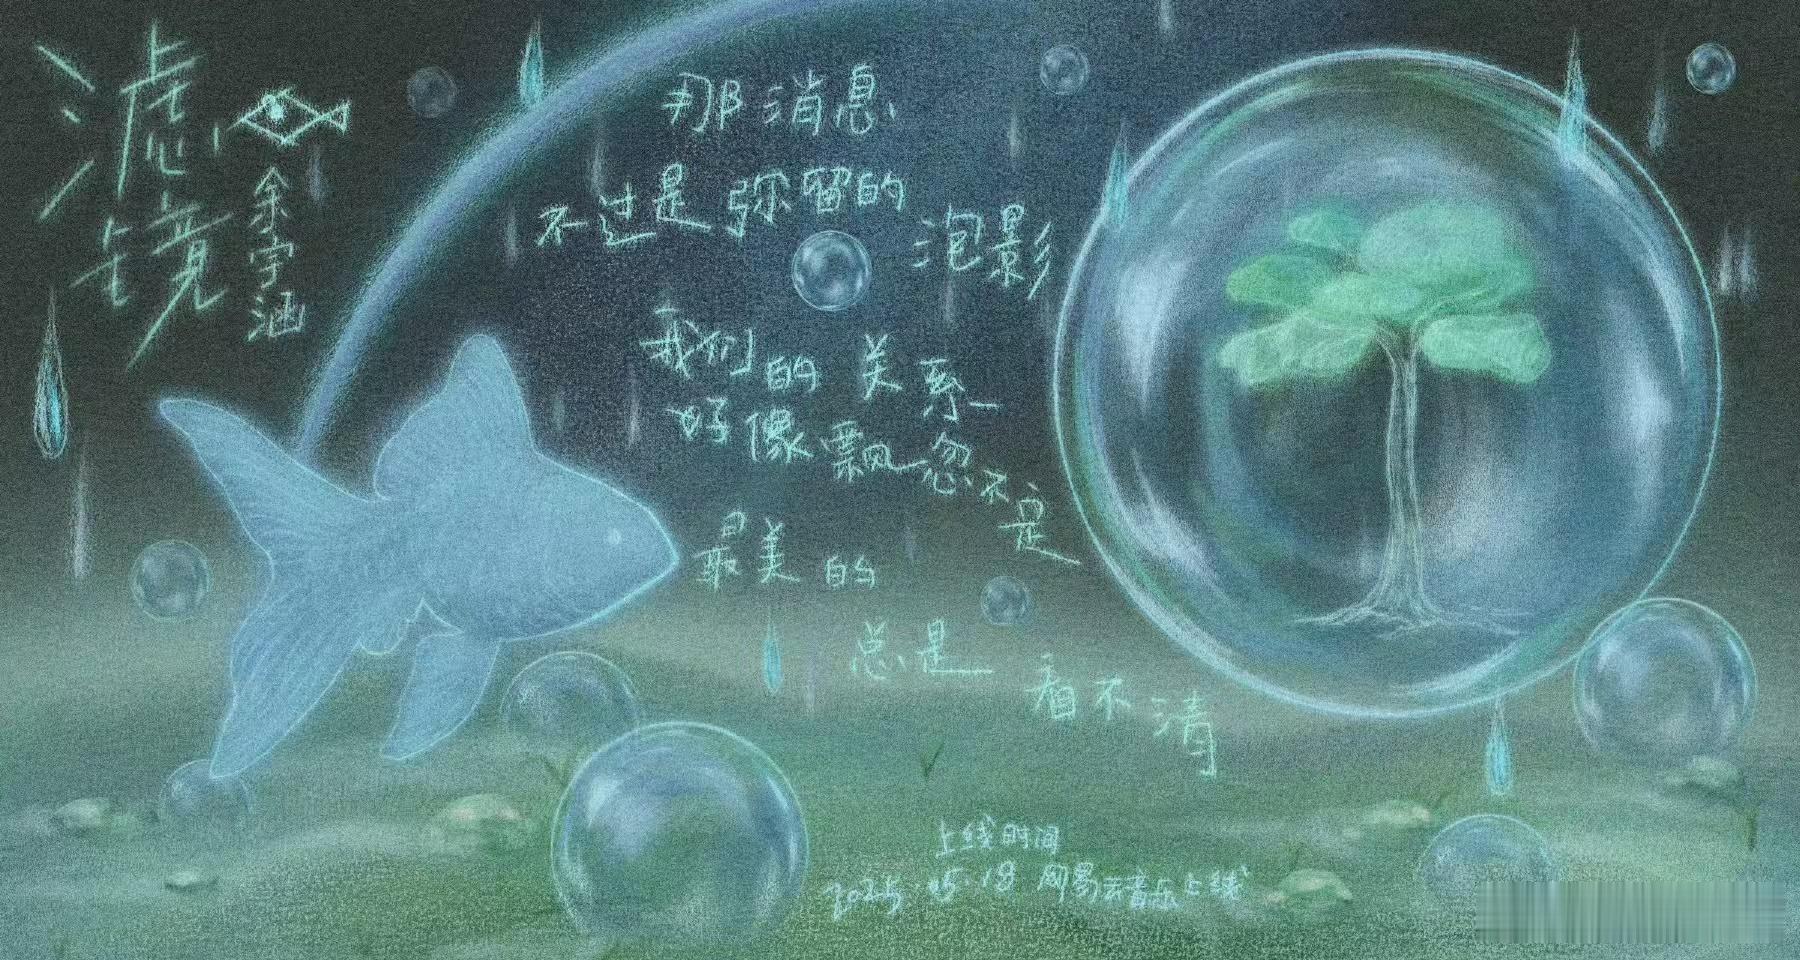 滤镜
余宇涵
那消息
不过是弥留的泡影
我们的关系
好像飘忽不定
最美的
总是
看不清
上线时间
2025.05.18 网易云音乐上线